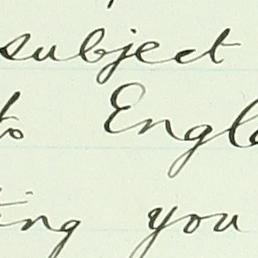 subject
to Engl
ing you